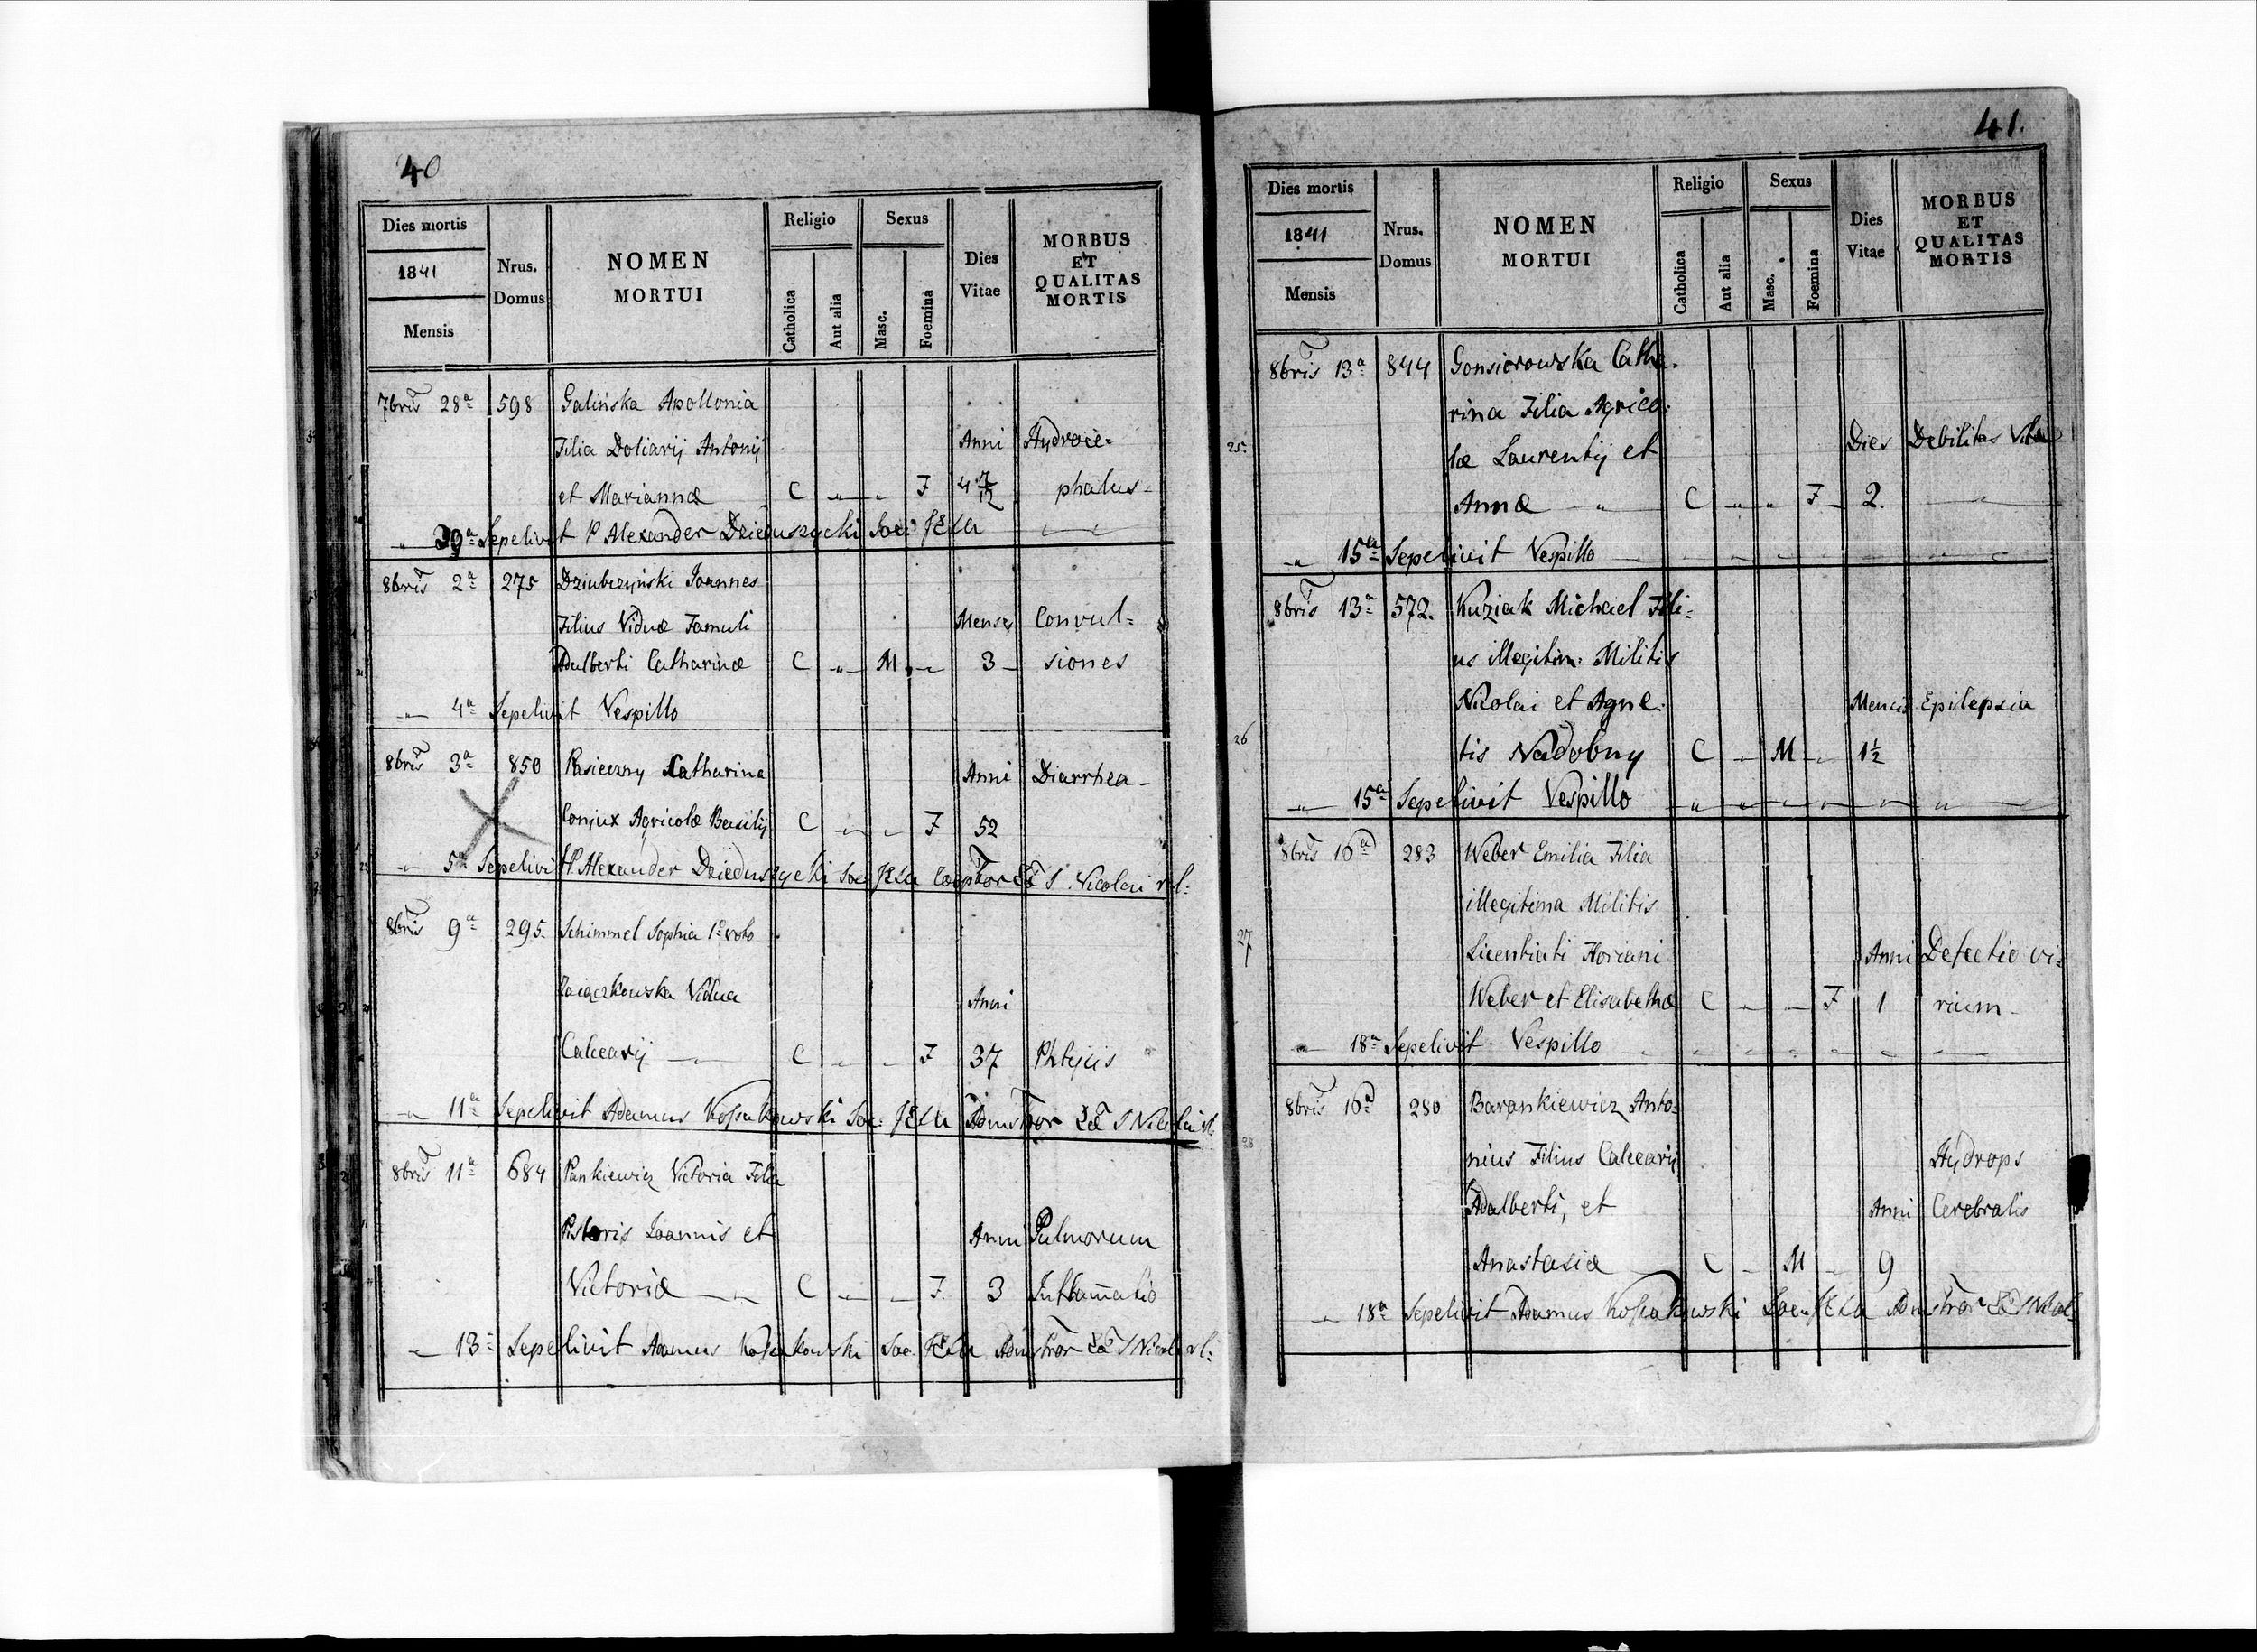 40
Dies mortis
1841
Mensis
Nrus.
Domus
NOMEN
MORTUI
Religio
Catholica
Aut alia
Sexus
Masc.
Foemina
Dies
Vitae
MORBUS
ET
QUALITAS
MORTIS
7bris 28a 598 Galińska Apollonia
Filia Doliarij Antonij Anni Hydroce=
et Mariannæ C „ „ F 4 7/12 phalus
„ 29a Sepelivit P Alexander Dzieduszycki Soc: JEsu
8bris 2a 275 Dziubczyński Joannes
Filius Viduæ Famuli Menses Convul=
Adalberti Catharinæ C „ M „ 3 siones
„ 4a Sepelivit Vespillo
8bris 3a 850 Pasieczny Catharina Anni Diarrhea
Conjux Agricolæ Basilij C „ „ F 52
„ 5a Sepelivit P. Alexander Dzieduszycki Soc JEsu S. Nicolai
8bris 9a 295. Schimmel Sophia 1o voto
Zaiączkowska Vidua Anni
Calcearij C „ „ F 37 Phtysis
„ 11a Sepelivit Adamus Kossakowski Soc: JEsu Admstror S Nicolai
8bris 11a 684 Pankiewicz Victoria Filia
Pistoris Joannis et Anni Pulmonum
Victoriæ C „ „ F. 3 Inflam̄atio
„ 13a Sepelivit Adamus Kossakowski Soc. JEsu Admstror S Nicol
41.
Dies mortis
1841
Mensis
Nrus.
Domus
NOMEN
MORTUI
Religio
Catholica
Aut alia
Sexus
Masc.
Foemina
Dies
Vitae
MORBUS
ET
QUALITAS
MORTIS
8bris 13a 844 Gonsiorowska Catha.
rina Filia Agrico:
25 læ Laurentij et Dies Debilitas Vitæ
Annæ „ C „ „ F 2.
„ 15a Sepelivit Vespillo
8bris 13a 572. Kuziak Michael Fili=
us illegitim: Militis
Nicolai et Agne: Mensis Epilepsia
26 tis Nadobny C „ M „ 1½
„ 15a Sepelivit Vespillo
8bris 16a 283 Weber Emilia Filia
illegitima Militis
27 Licentiati Floriani Anni Defectio vi=
Weber et Elisabethæ C „ „ F 1 rium
„ 18a Sepelivit Vespillo
8bris 16a 280 Barankiewicz Anto=
28 nius Filius Calcearij Hydrops
Adalberti, et Anni Cerebralis
Anastasiæ C „ M „ 9
„ 18a Sepelivit Adamus Kossakowski Soc. JEsu Admstror S Nicol